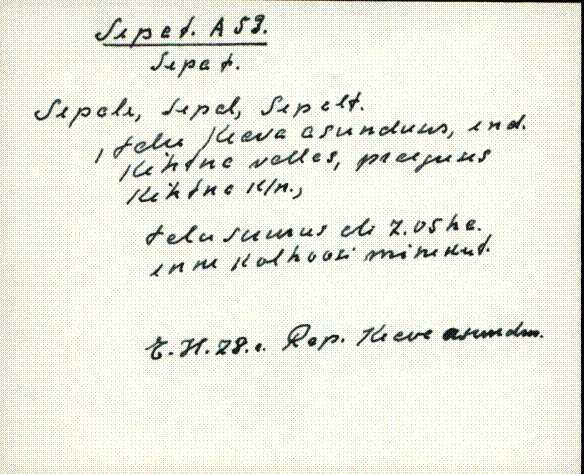 Sepat. A 59.
Sepat.
Sepale, Sepal, Sepalt.
, talu Kieva asunduus, end.
Kihtna vallas, praegusus
Kihtna K/n.,
talu suurus oli 7.05 ha.
enne Kolhoosi minekut.
E. H. 28.a. Rap. Kieva asundus.